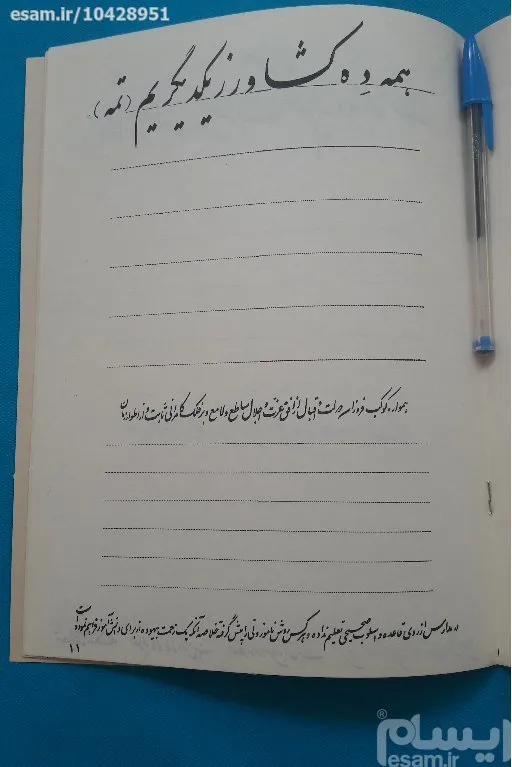 esam.ir/10428951
همه دِه کشاورز یکدیگریم (تمه)
همواره کوکب فروزان دولت و اقبال از افق عزت و اجلال ساطع و لامع و بر فلک کامرانی ثابت و
مدارس از روی قاعده و اسلوب صحیحی تعلیم نداده و هر کس روش ناموزونی را پیش گرفته خلاصه آنکه یک زحمت بیهوده از برای دانش آموز فراهم نموده است
۱۱
ایسام
esam.ir